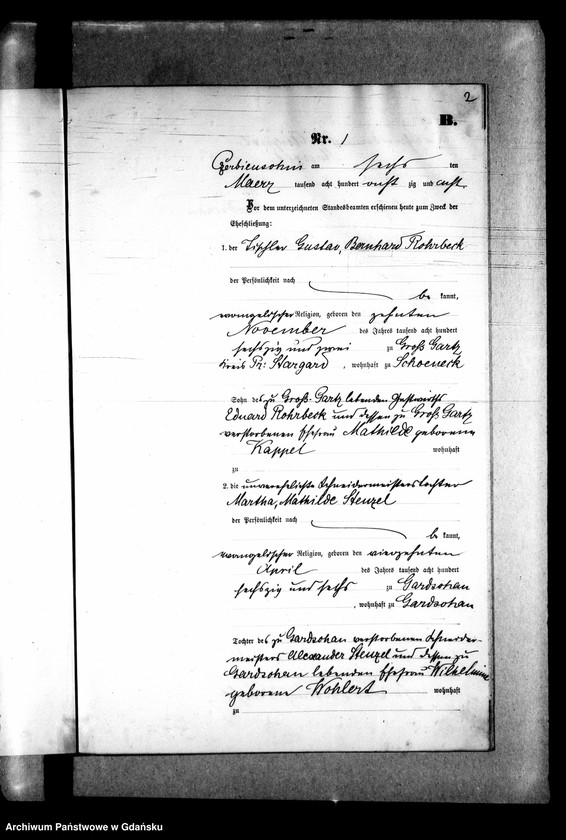 2
B.
Nr. 1
Czerbienschin am sechs ten
Maerz tausend acht hundert acht zig und acht
Vor dem unterzeichneten Standesbeamten erschienen heute zum Zweck der
Eheschließung:
1. der Tischler Gustav, Bernhard Rohrbeck
der Persönlichkeit nach
be kannt,
evangelischer Religion, geboren den zehnten
November des Jahres tausend acht hundert
sechszig und zwei zu Groß Gartz
Kreis Pr: Stargard, wohnhaft zu Schoeneck
Sohn des zu Groß-Gartz lebenden Gastwirths
Eduard Rohrbeck und dessen zu Groß Gartz
verstorbenen Ehefrau Mathilde geborene
Kappel wohnhaft
zu
2. die unverehelichte Schneidermeisterstochter
Martha, Mathilde Stenzel
der Persönlichkeit nach
be kannt,
evangelischer Religion, geboren den vierzehnten
April des Jahres tausend acht hundert
sechszig und sechs zu Gardschau
, wohnhaft zu Gardschau
Tochter des zu Gardschau verstorbenen Schneider-
meisters Alexander Stenzel und dessen zu
Gardschau lebenden Ehefrau Wilhelmine
geborene Wohlert wohnhaft
zu
Archiwum Państwowe w Gdańsku